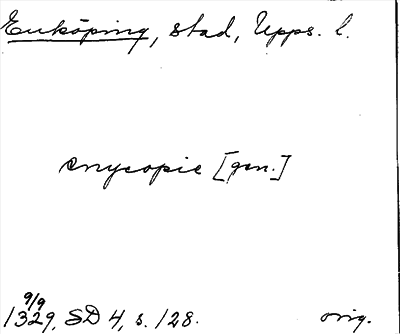 Enköping, stad, Upps. l.
enycopie [gen.]
9/9
1329, SD 4, s. 128. orig.